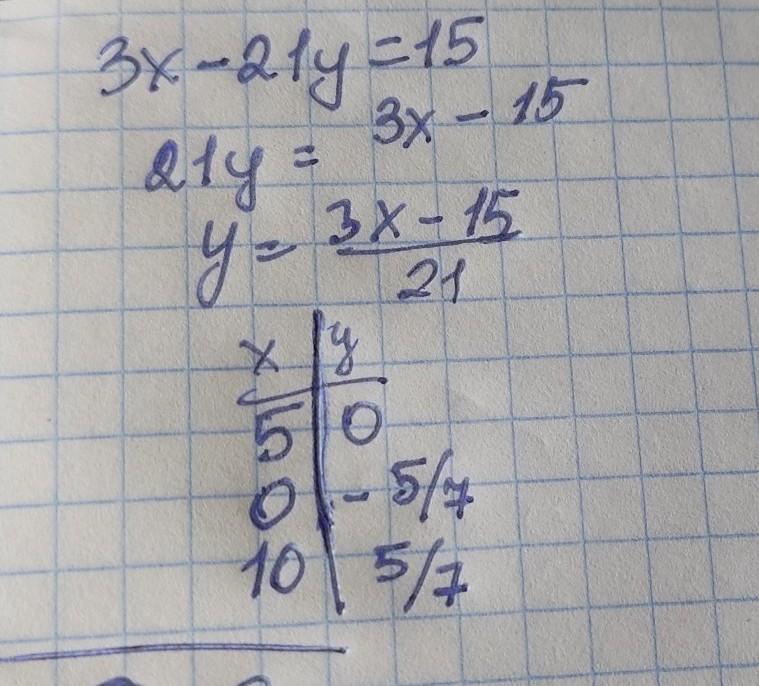 3x - 21y = 15
21y = 3x - 15
y = 3x - 15
21
x y
5 0
0 - 5/7
10 5/7